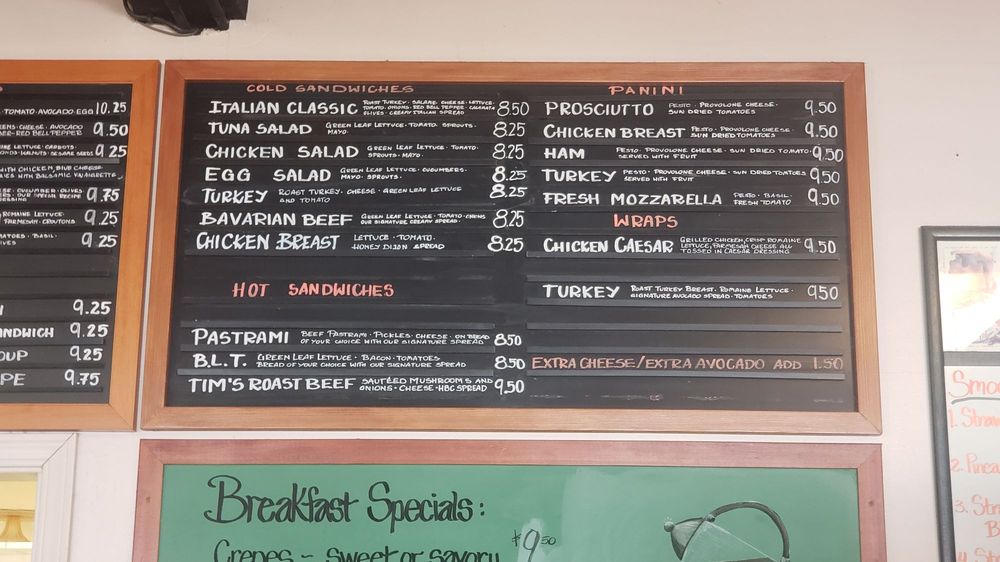 TOMATO·AVOCADO·EGG 10.25
CHEESE·AVOCADO 9.50
RED BELL PEPPER
LETTUCE·CARROTS· 9.25
SESAME SEEDS
WITH CHICKEN, BLUE CHEESE
WITH BALSAMIC VINAIGRETTE
CUCUMBER·OLIVES 9.75
OUR SPECIAL RECIPE
ROMAINE LETTUCE· 9.25
PARMESAN·CROUTONS
BASIL· 9.25
9.25
9.25
9.25
9.75
COLD SANDWICHES
ITALIAN CLASSIC ROAST TURKEY·SALAME·CHEESE·LETTUCE· 8.50
TOMATO·ONIONS·RED BELL PEPPER·CALAMATA
OLIVES·CREAMY ITALIAN SPREAD
TUNA SALAD GREEN LEAF LETTUCE·TOMATO·SPROUTS· 8.25
MAYO·
CHICKEN SALAD GREEN LEAF LETTUCE·TOMATO· 8.25
SPROUTS·MAYO·
EGG SALAD GREEN LEAF LETTUCE·CUCUMBERS· 8.25
MAYO·SPROUTS·
TURKEY ROAST TURKEY·CHEESE·GREEN LEAF LETTUCE 8.25
AND TOMATO
BAVARIAN BEEF GREEN LEAF LETTUCE·TOMATO· 8.25
OUR SIGNATURE CREAMY SPREAD·
CHICKEN BREAST LETTUCE·TOMATO· 8.25
HONEY DIJON SPREAD
HOT SANDWICHES
PASTRAMI BEEF PASTRAMI·PICKLES·CHEESE·ON BREAD 8.50
OF YOUR CHOICE WITH OUR SIGNATURE SPREAD
B.L.T. GREEN LEAF LETTUCE·BACON·TOMATOES 8.50
BREAD OF YOUR CHOICE WITH OUR SIGNATURE SPREAD
TIM'S ROAST BEEF SAUTÉED MUSHROOMS AND 9.50
ONIONS·CHEESE·HBC SPREAD
PANINI
PROSCIUTTO PESTO·PROVOLONE CHEESE· 9.50
SUN DRIED TOMATOES
CHICKEN BREAST PESTO·PROVOLONE CHEESE· 9.50
SUN DRIED TOMATOES
HAM PESTO·PROVOLONE CHEESE·SUN DRIED TOMATO· 9.50
SERVED WITH FRUIT
TURKEY PESTO·PROVOLONE CHEESE·SUN DRIED TOMATOES 9.50
SERVED WITH FRUIT
FRESH MOZZARELLA PESTO·BASIL· 9.50
FRESH TOMATO
WRAPS
CHICKEN CAESAR GRILLED CHICKEN, CRISP ROMAINE 9.50
LETTUCE, PARMESAN CHEESE ALL
TOSSED IN CAESAR DRESSING
TURKEY ROAST TURKEY BREAST·ROMAINE LETTUCE· 9.50
SIGNATURE AVOCADO SPREAD·TOMATOES
EXTRA CHEESE/EXTRA AVOCADO ADD 1.50
Breakfast Specials:
Crepes - sweet or savory $9.50
1.
2.
3.